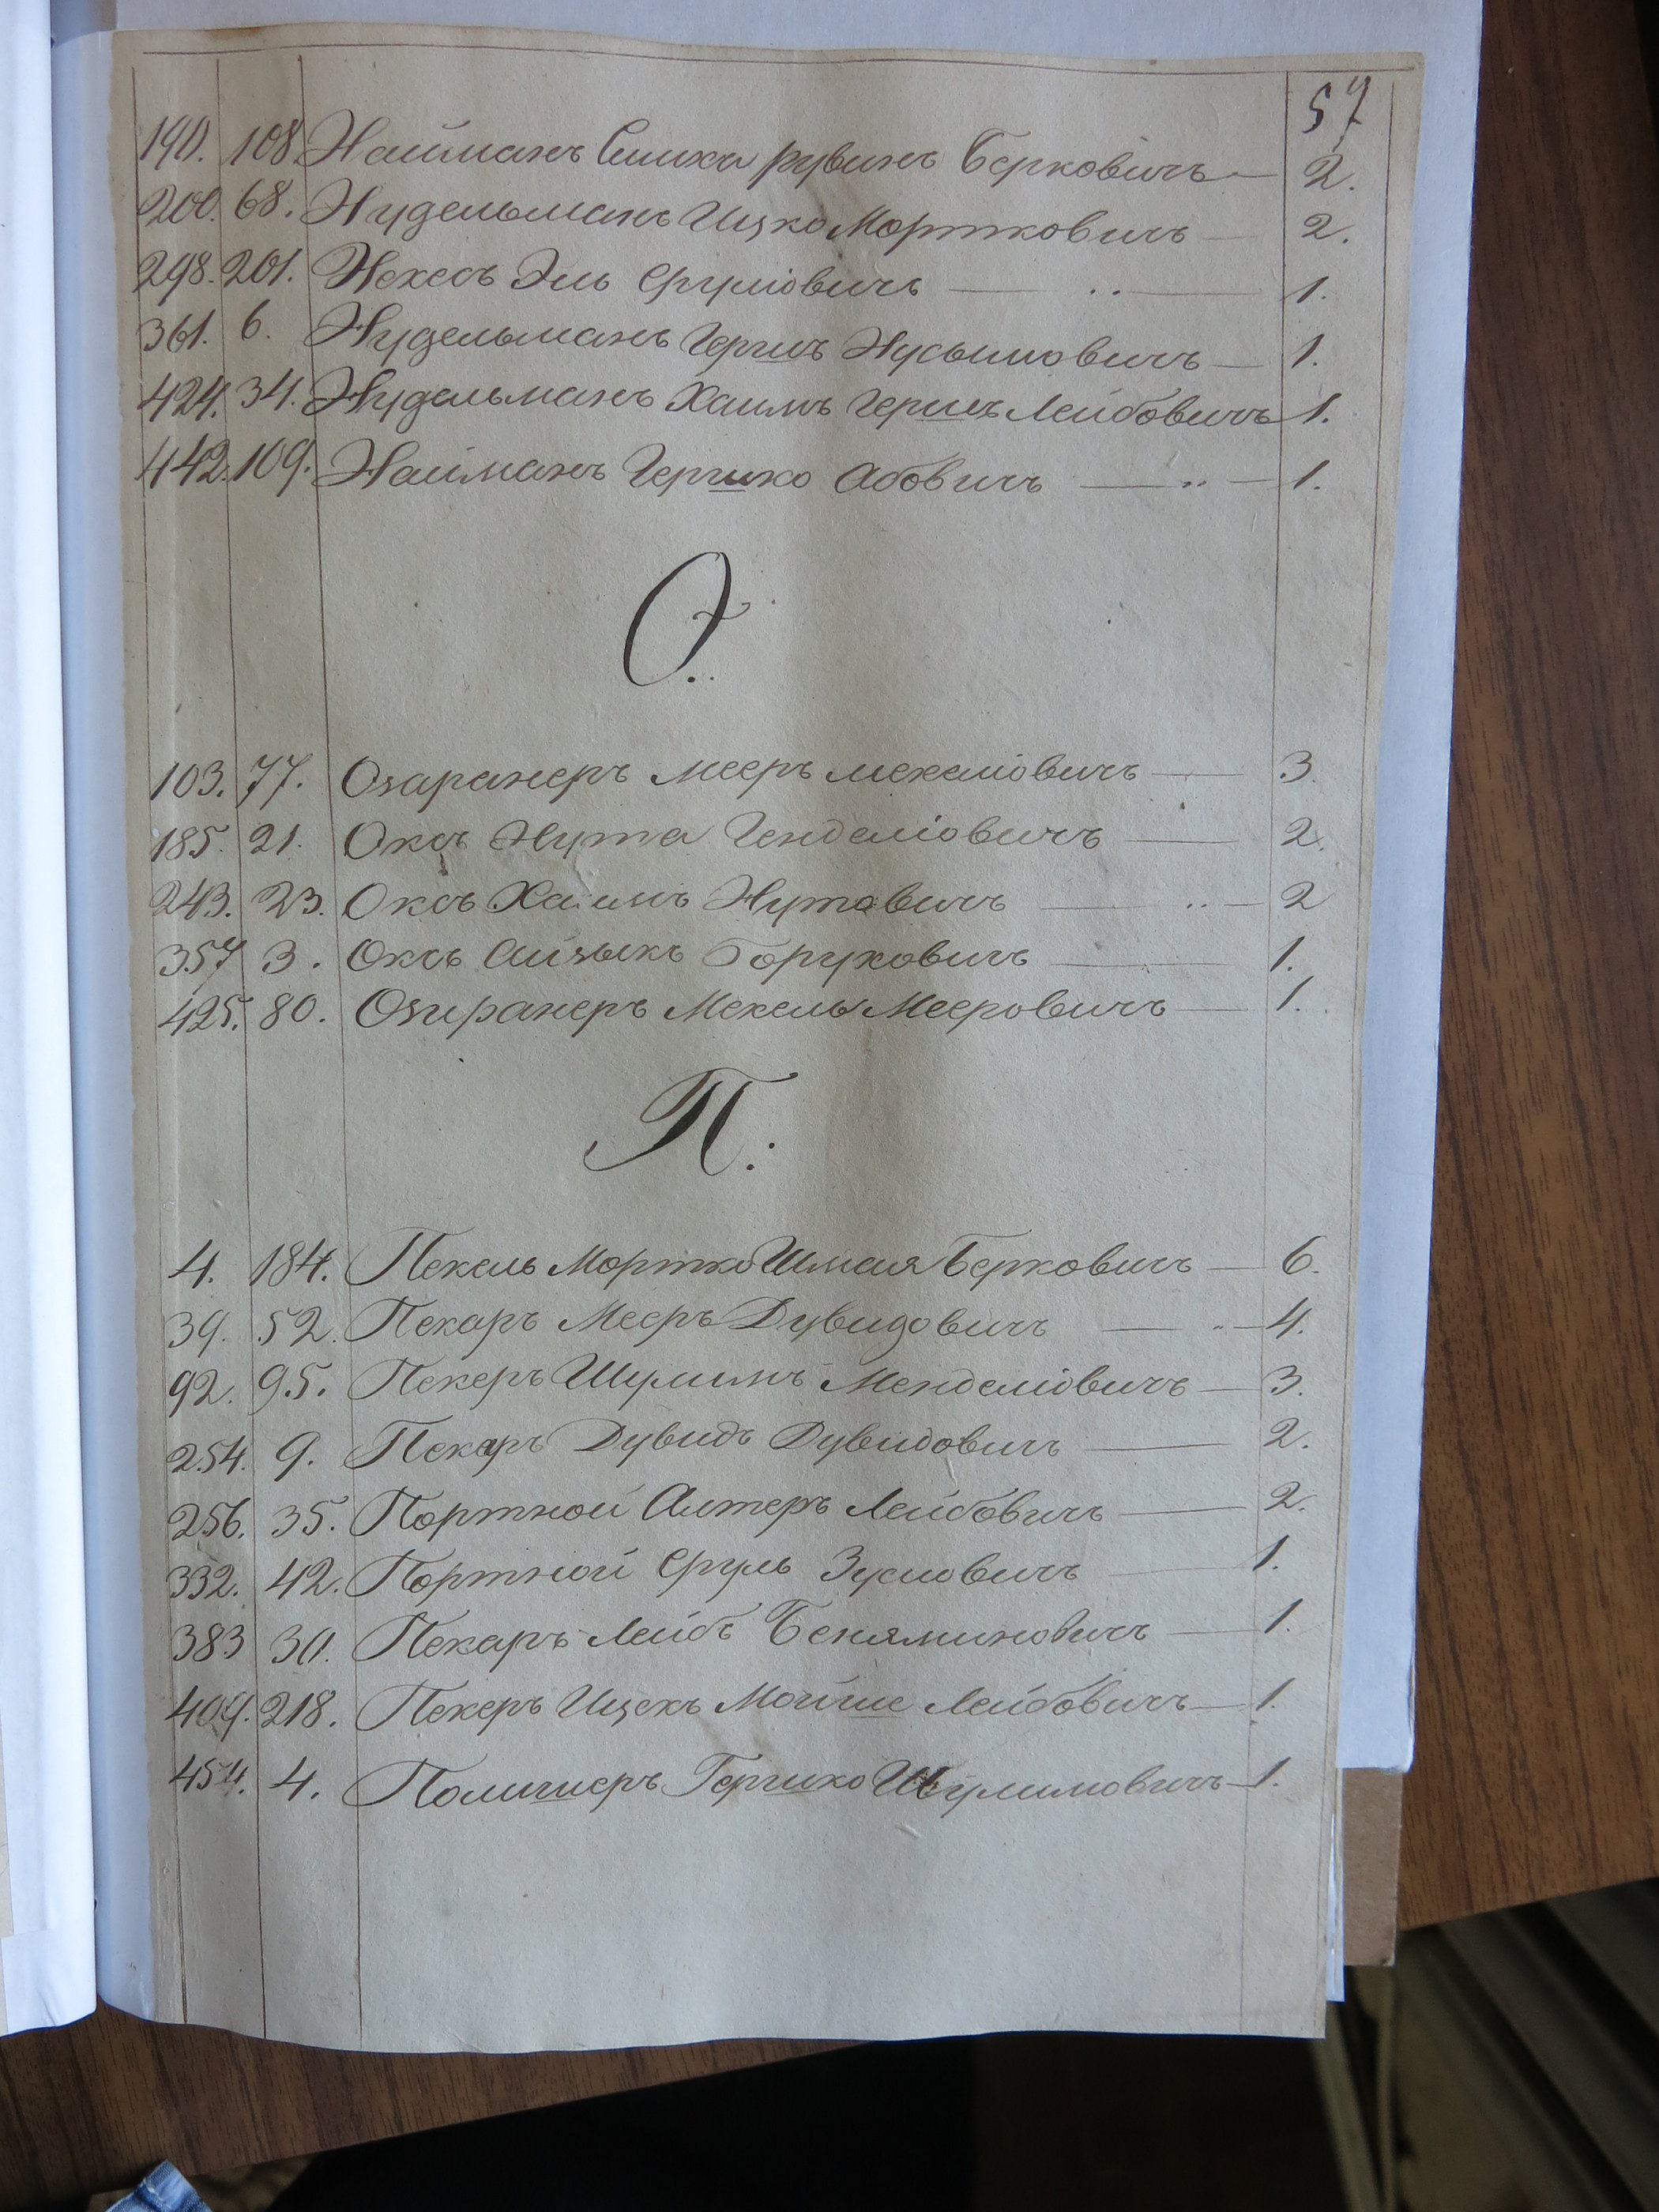 57
190. 108 Найманъ Симха Рувинъ Берковичъ — 2.
200. 68. Нудельманъ Ицко Мортковичъ — 2.
298. 201. Нехесъ Эль Сруліовичъ — 1.
361. 6. Нудельманъ Гершъ Нусымовичъ — 1.
424. 34. Нудельманъ Хаимъ Гершъ Лейбовичъ 1.
442. 109. Найманъ Гершко Абовичъ — 1.
О.
103. 77. Озаранеръ Мееръ Мехеліовичъ — 3.
185. 21. Оксъ Нута Генделіовичъ — 2.
243. 23. Оксъ Хаимъ Нутовичъ — 2
357 3. Оксъ Айзыкъ Боруховичъ — 1.
425. 80. Озиранеръ Мехель Мееровичъ — 1.
П.
4. 184. Пекель Мортко Шмая Берковичъ — 6.
39. 52. Пекаръ Мееръ Дувидовичъ — 4.
92. 95. Пекеръ Шулимъ Менделіовичъ — 3.
254. 9. Пекаръ Дувидъ Дувидовичъ — 2.
256. 35. Портной Алтеръ Лейбовичъ — 2.
332. 42. Портной Сруль Зусіовичъ — 1.
383 30. Пекаръ Лейбъ Беняминовичъ — 1.
409. 218. Пекеръ Ицекъ Мойше Лейбовичъ — 1.
454. 4. Полишеръ Гершко Шулимовичъ — 1.